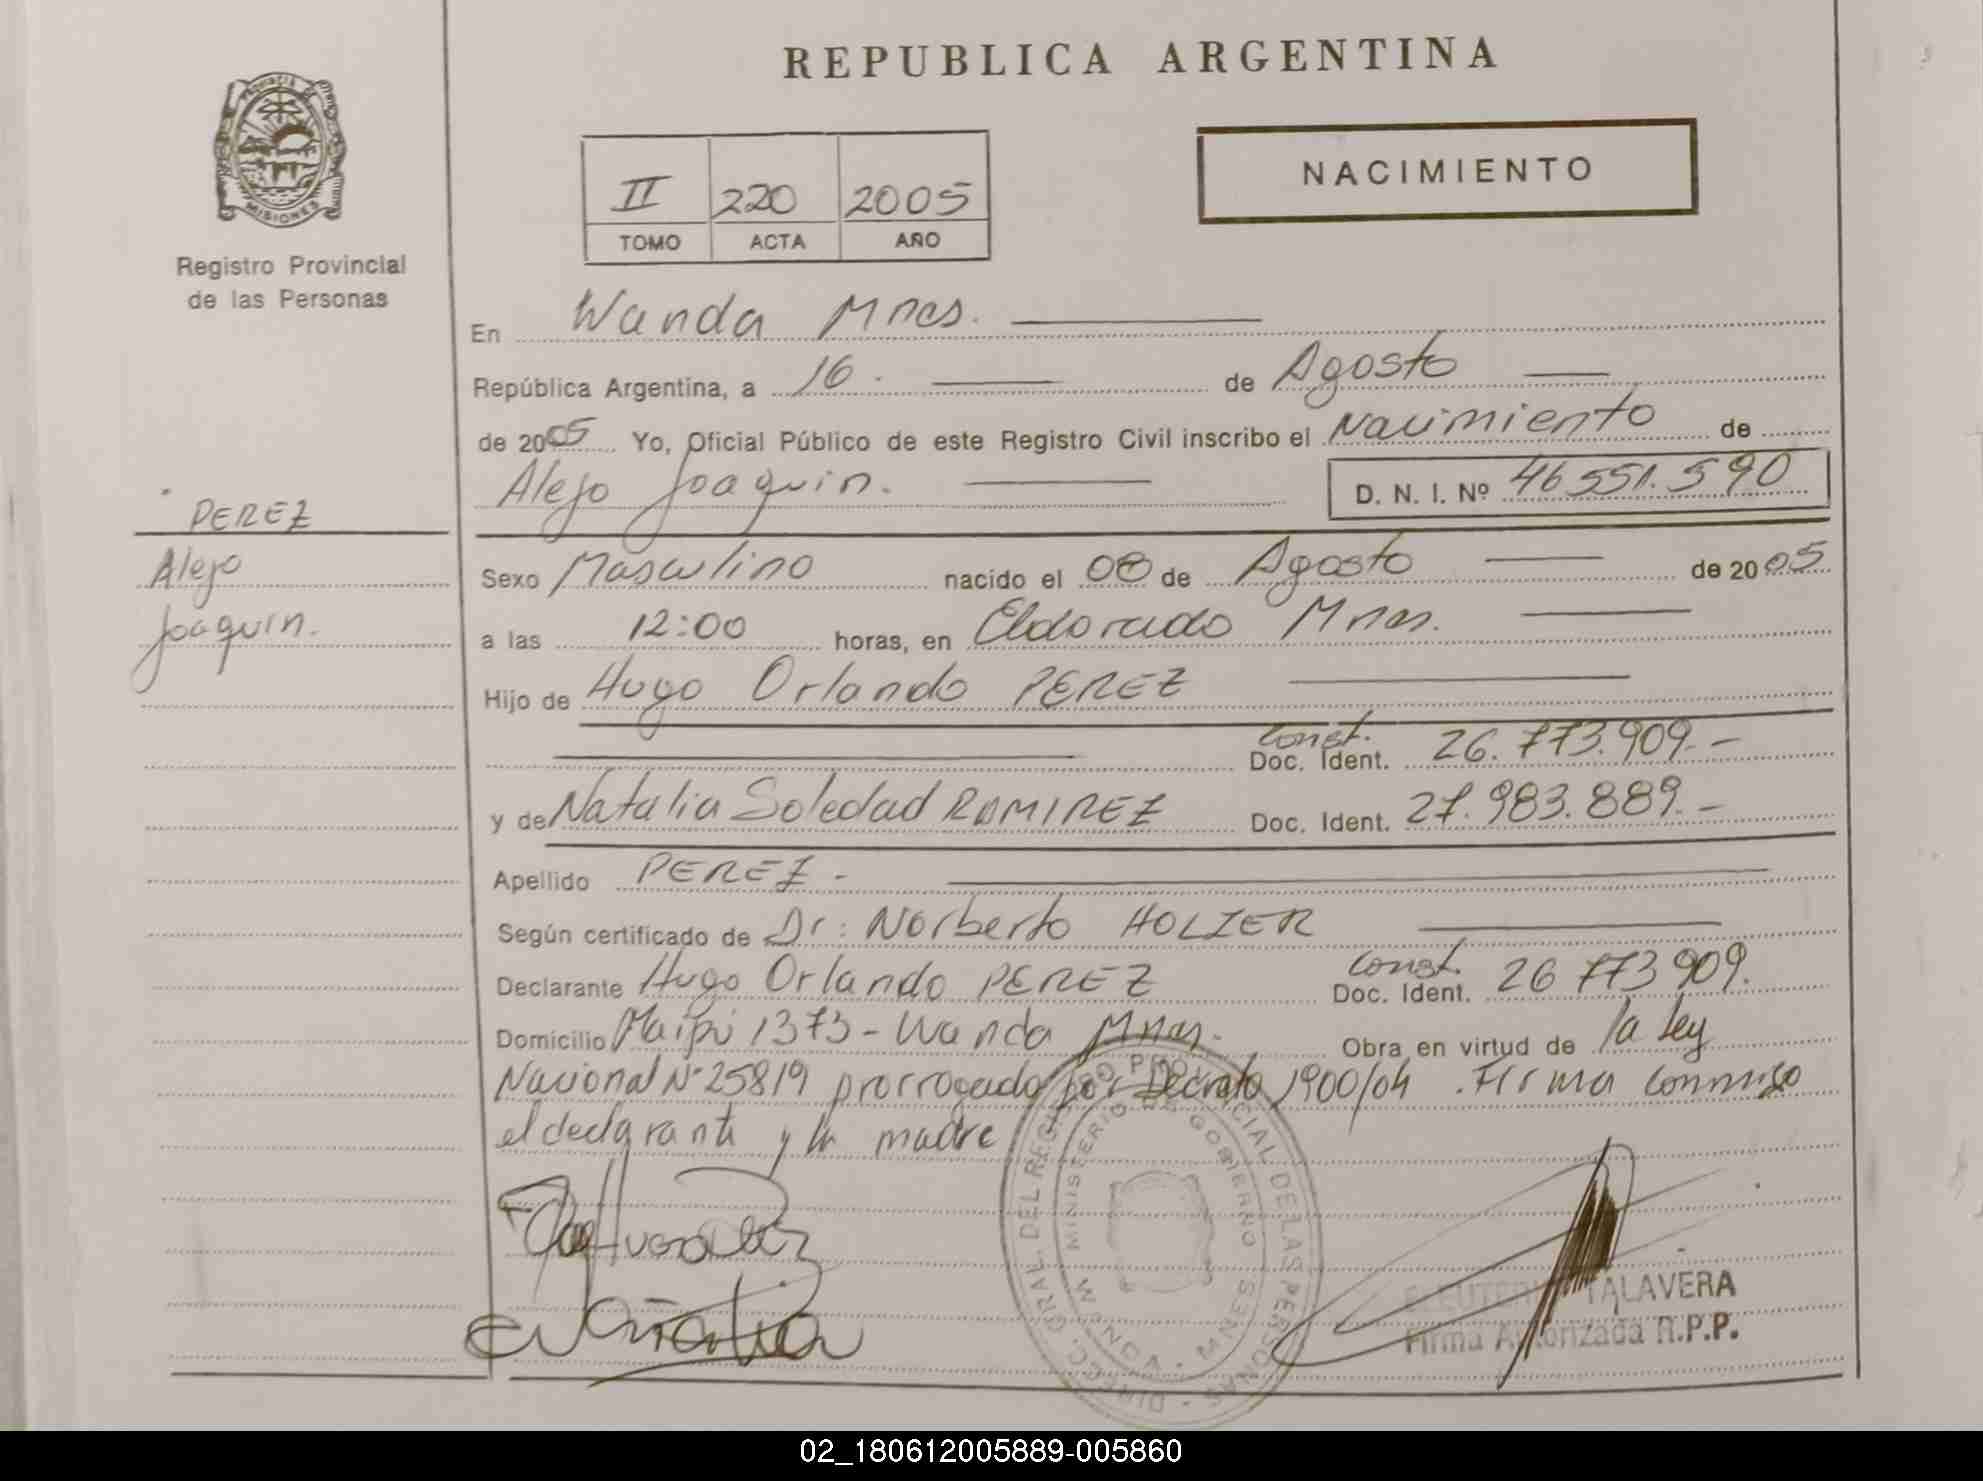 REPUBLICA ARGENTINA
PROVINCIA
MISIONES
Registro Provincial
de las Personas
II 220 2005
TOMO ACTA AÑO
NACIMIENTO
En Wanda Mnes.
República Argentina, a 16. de Agosto
de 2005 Yo, Oficial Público de este Registro Civil inscribo el Nacimiento de
Alejo Joaquin. D. N. I. Nº 46 551.590
PEREZ
Alejo
Joaquin.
Sexo Masculino nacido el 08 de Agosto de 2005
a las 12:00 horas, en Eldorado Mnes.
Hijo de Hugo Orlando PEREZ
Const.
Doc. Ident. 26.773.909.-
y de Natalia Soledad RAMIREZ Doc. Ident. 27.983.889.-
Apellido PEREZ.-
Según certificado de Dr: Norberto HOLZER
Declarante Hugo Orlando PEREZ Const. Doc. Ident. 26 773 909.
Domicilio Maipú 1373-Wanda Mnes. Obra en virtud de la Ley
Nacional Nº 25819 prorrogado por Decreto 1900/04. Firma conmigo
el declarante y la madre
DIRECC. GRAL. DEL REGISTRO PROVINCIAL DE LAS PERSONAS
MINISTERIO DE GOBIERNO
MNES
TALAVERA
Firma Autorizada R.P.P.
02_180612005889-005860